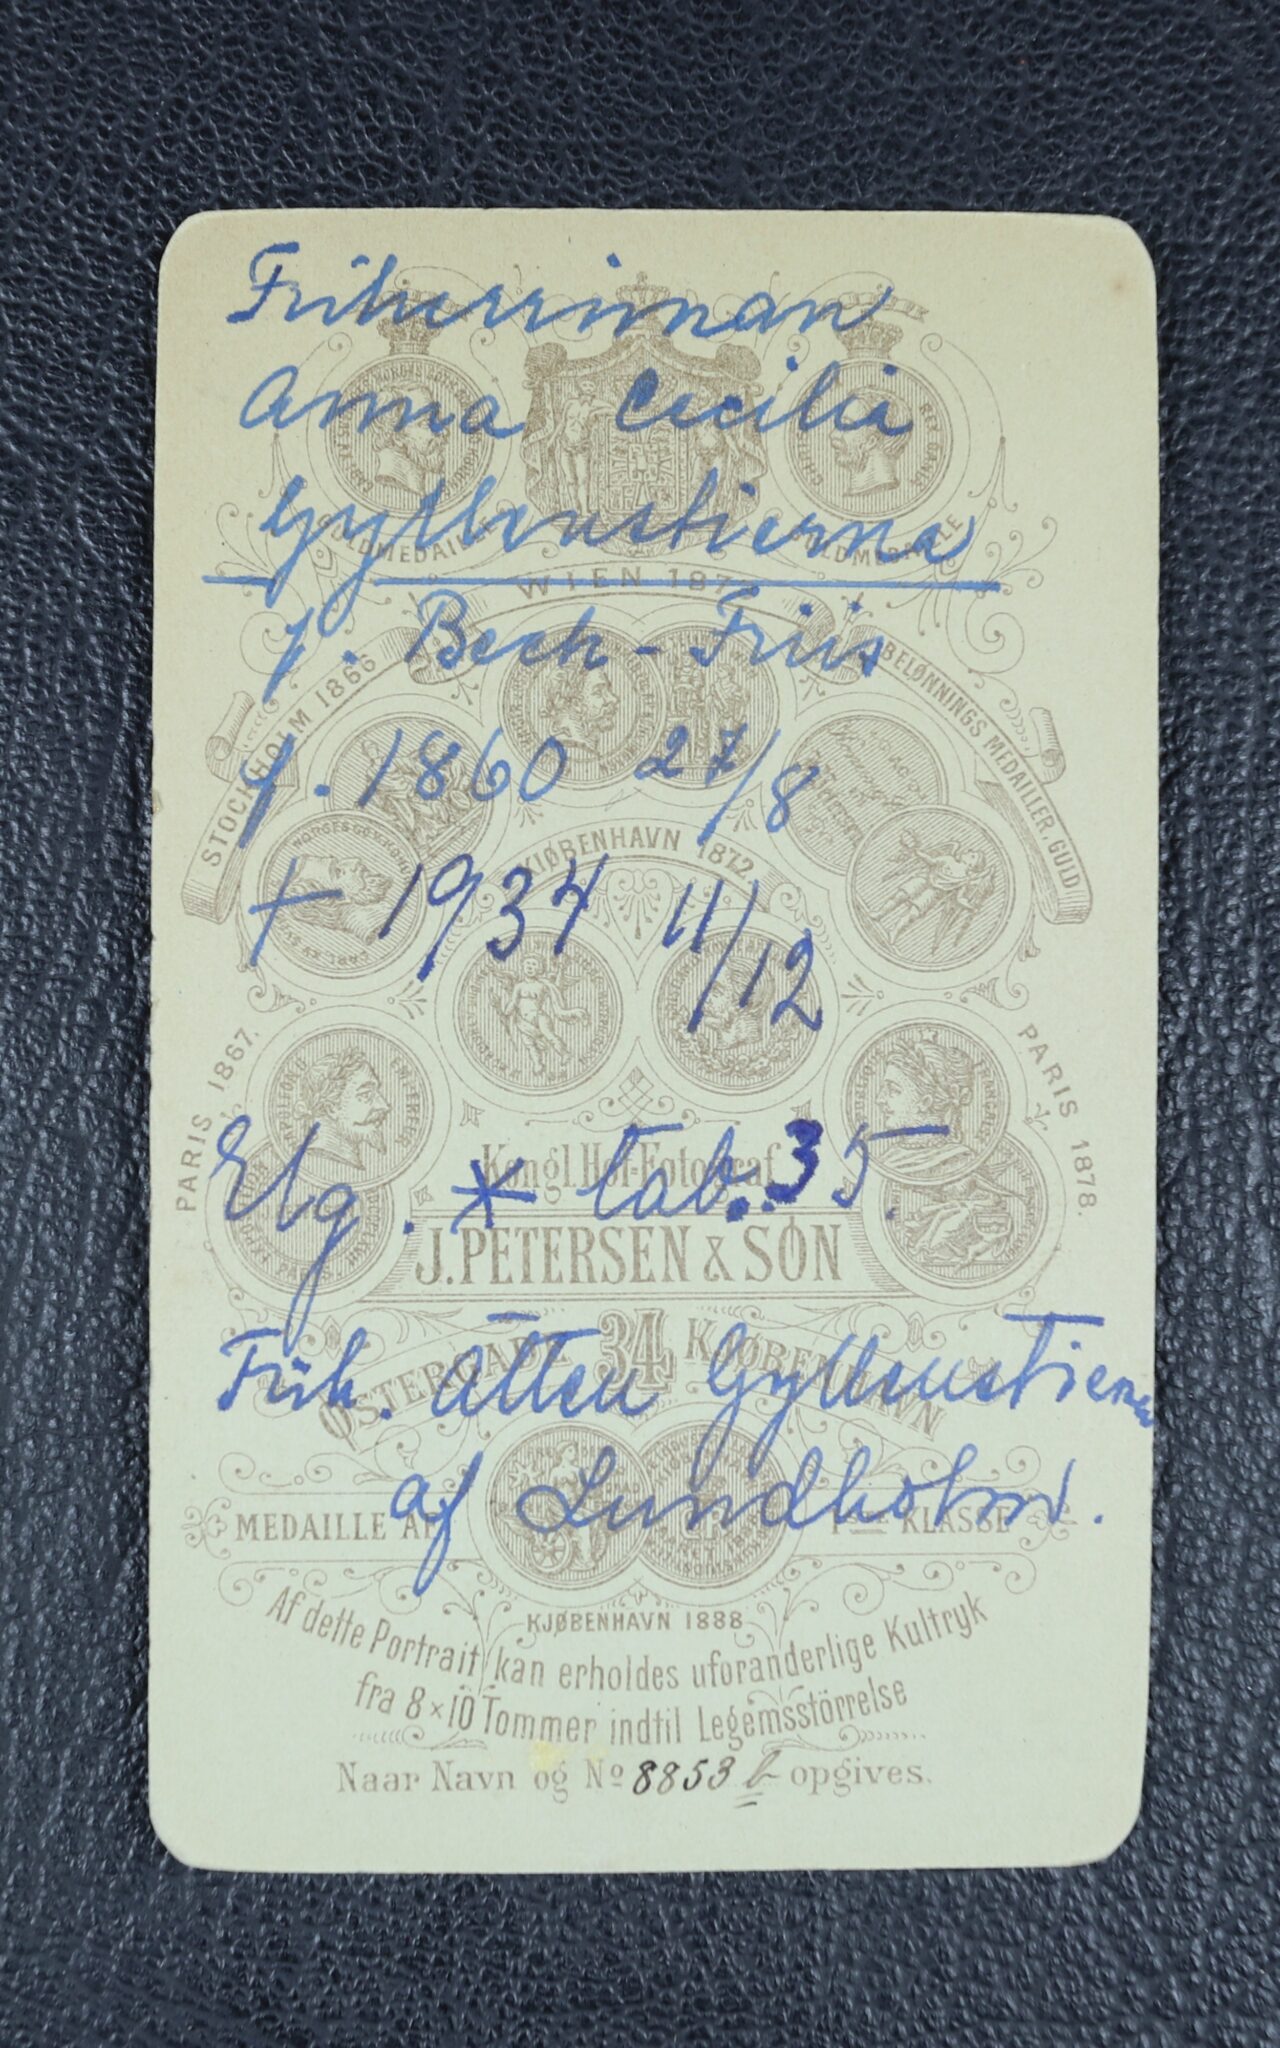 Friherrinnan
Anna Cecilia
Gyllenstierna
f. Beck-Friis
f. 1860 27/8
† 1934 11/12
Elg. * tab. 35.
Frih. ätten Gyllenstierna
af Lundholm.
GULDMEDAILLE
GULDMEDAILLE
WIEN 1873
STOCKHOLM 1866
BELØNNINGS MEDAILLER, GULD
KJØBENHAVN 1872.
PARIS 1867.
PARIS 1878.
Kongl. Hof-Fotograf
J. PETERSEN & SØN
ØSTERGADE 34 KJØBENHAVN
MEDAILLE AF 1ste KLASSE
KJØBENHAVN 1888
Af dette Portrait kan erholdes uforanderlige Kultryk
fra 8×10 Tommer indtil Legemsstörrelse
Naar Navn og No 8853 b opgives.